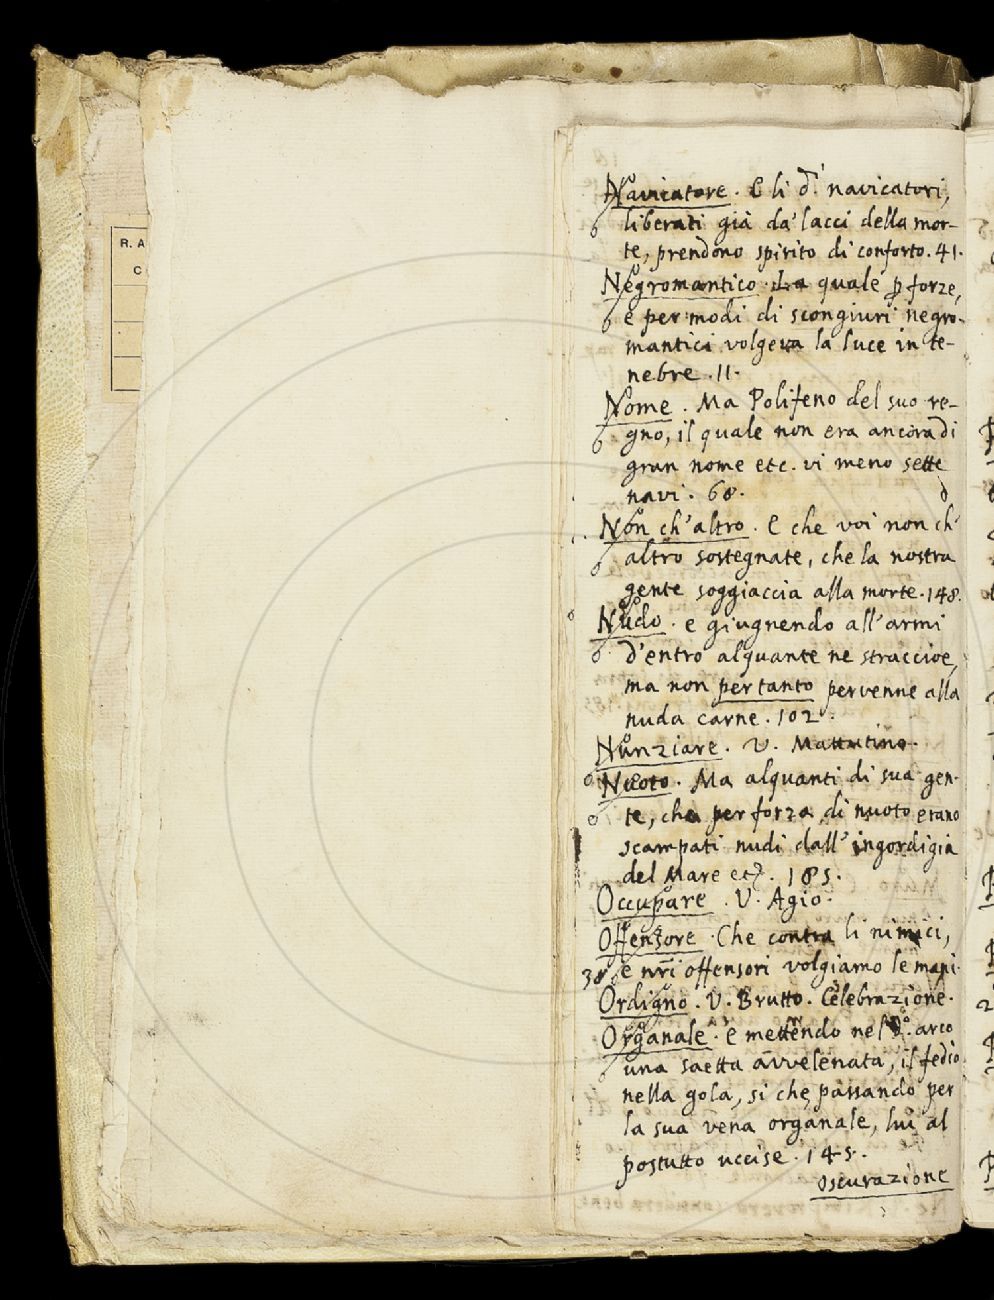 R. A
C
Navicatore. E li d.i navicatori,
liberati già da' lacci della mor-
te, prendono spirito di conforto. 41.
Negromantico. La quale p forze,
e per modi di scongiuri negro-
mantici volgeva la luce in te-
nebre. 11.
Nome. Ma Polifeno del suo re-
gno, il quale non era ancora di
gran nome etc. vi meno sette
navi. 68.
Non ch'altro. E che voi non ch'
altro sostegnate, che la nostra
gente soggiaccia alla morte. 148.
Nudo. e giugnendo all'armi
d'entro alquante ne straccioe,
ma non pertanto pervenne alla
nuda carne. 102.
Nunziare. V. Mattutino.
Nuoto. Ma alquanti di sua gen-
te, che per forza di nuoto erano
scampati nudi dall'ingordigia
del Mare etc. 185.
Occupare. V. Agio.
Offensore. Che contra li nimici,
38. e nri offensori volgiamo le mani.
Ordigno. V. Brutto. Celebrazione.
Organale. e mettendo nel d.o arco
una saetta avvelenata, il fedio
nella gola, si che passando per
la sua vena organale, lui al
postutto uccise. 145.
oscurazione